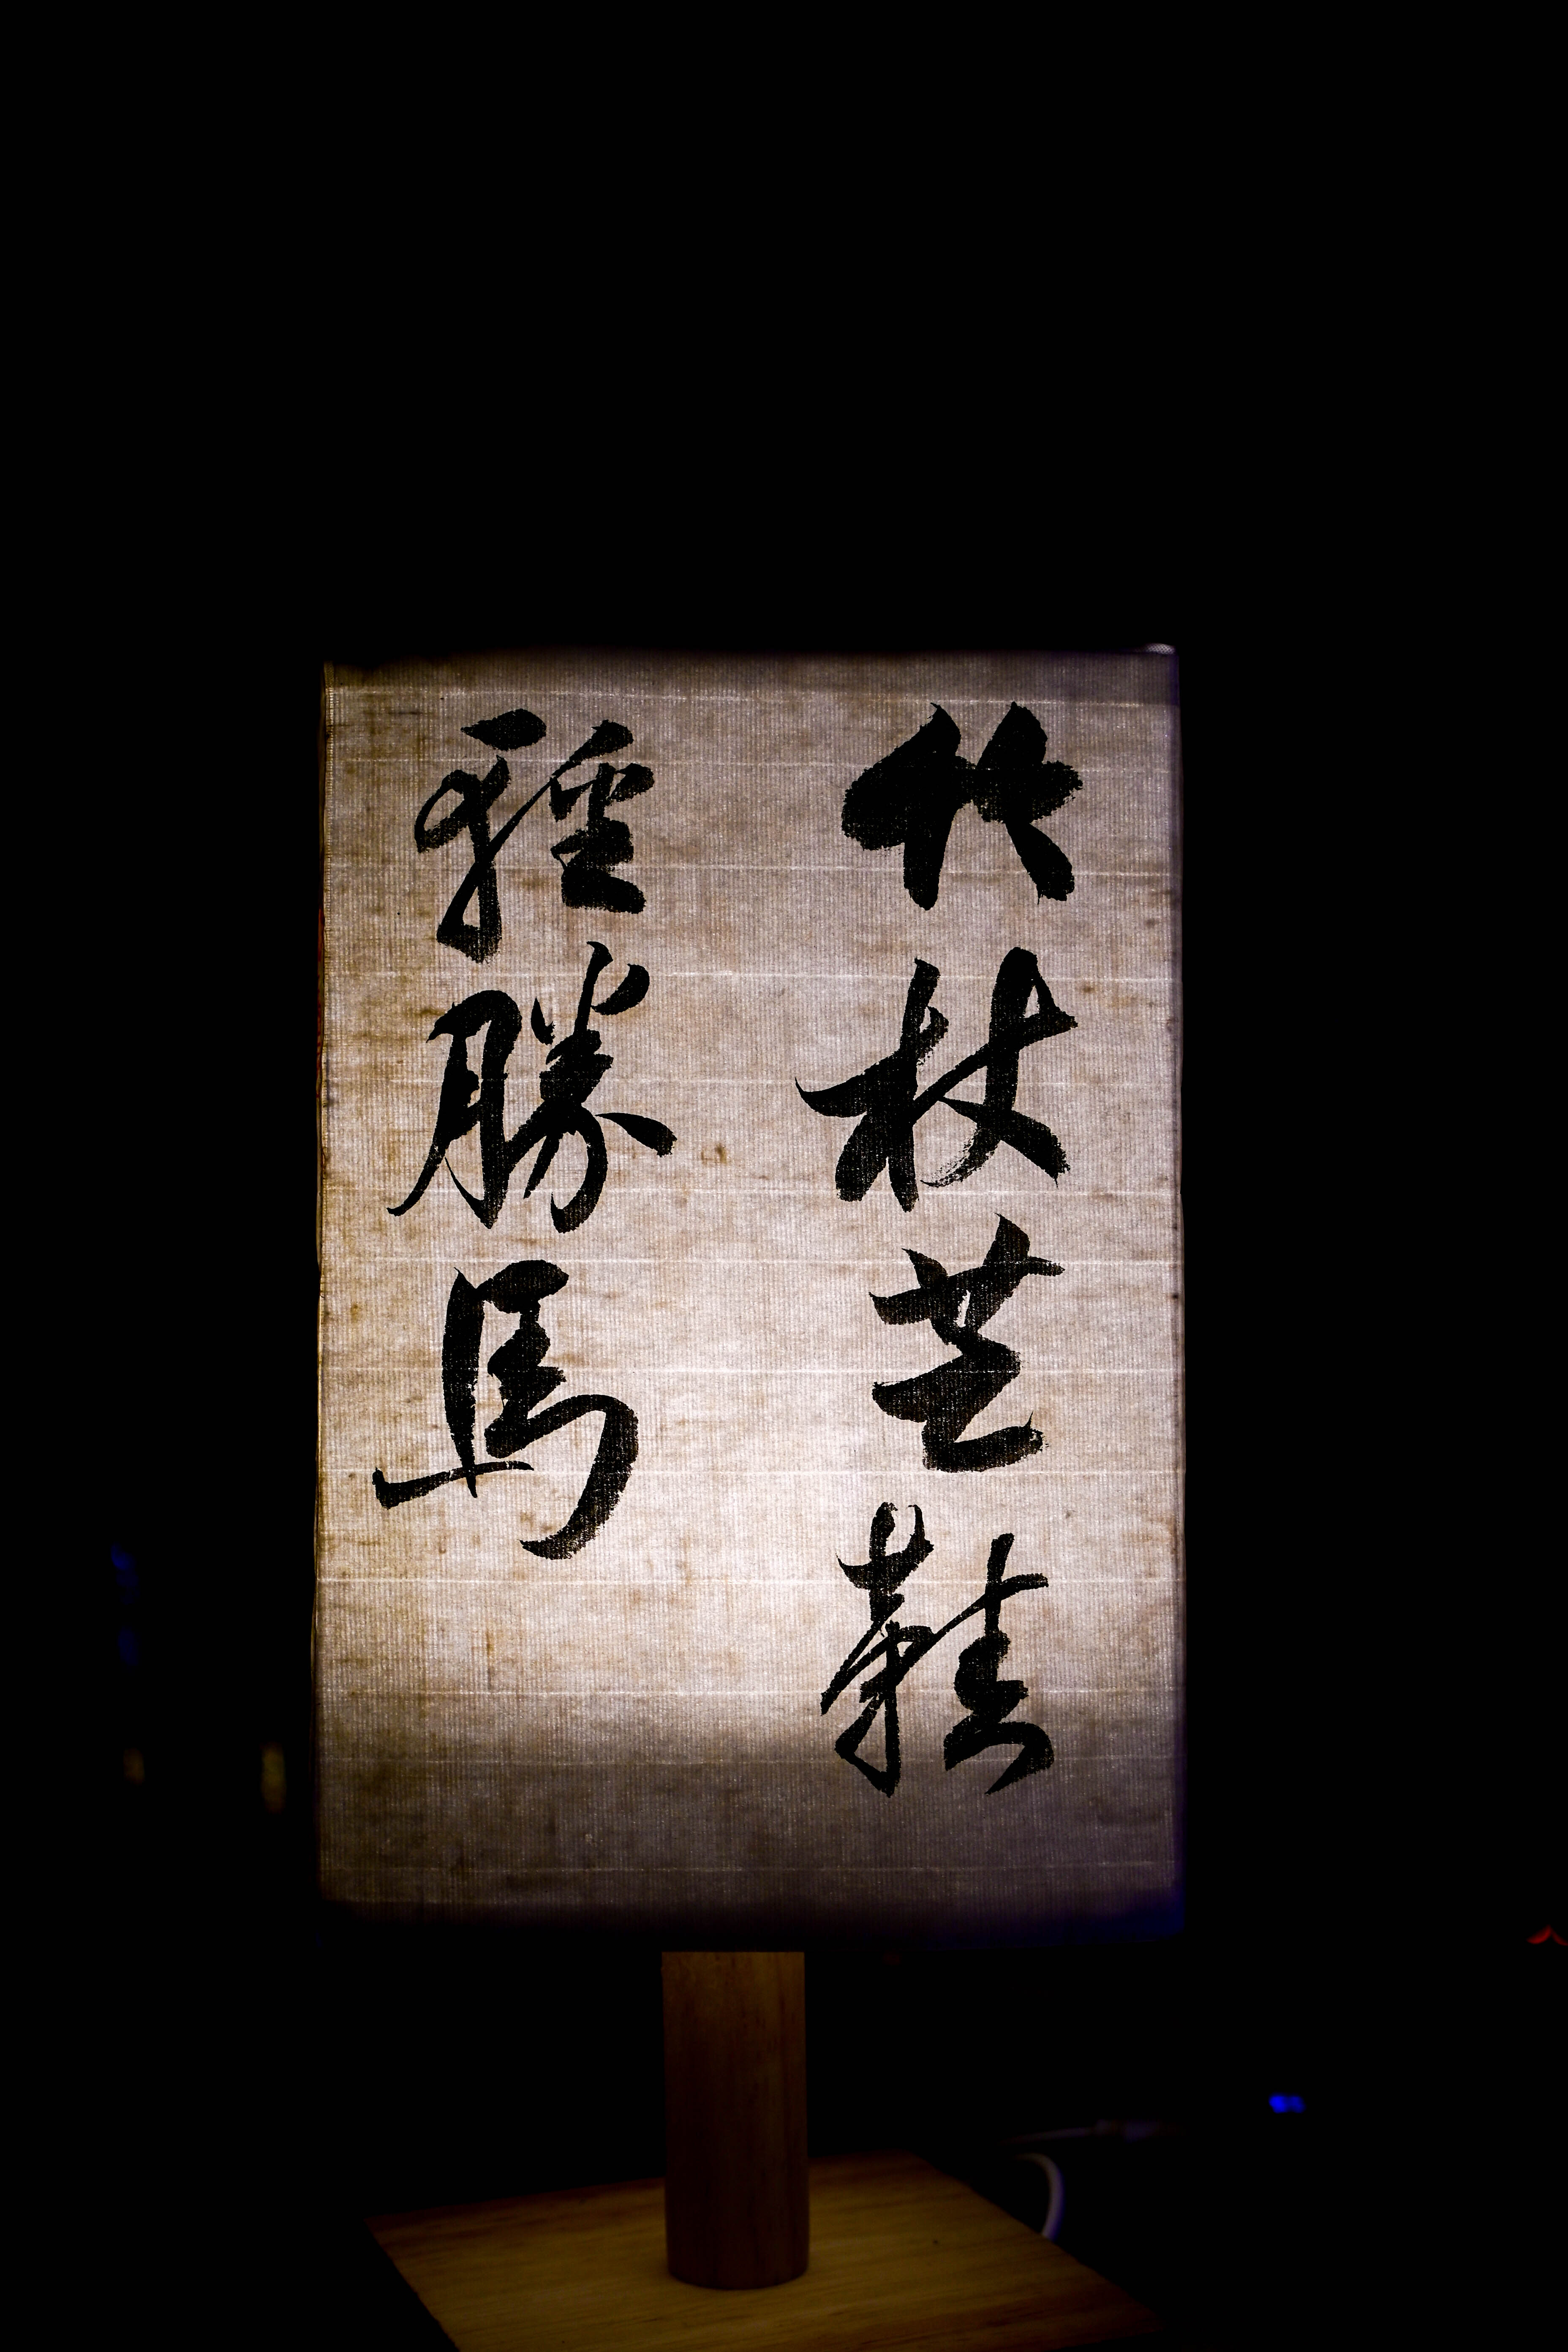 竹杖芒鞋
輕勝馬